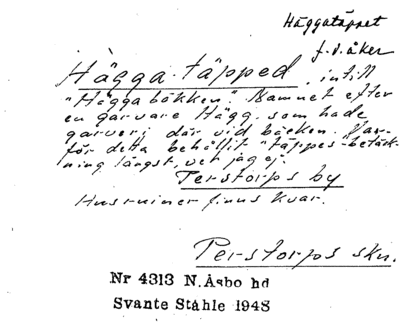 Häggatäppet
f.d. åker
Hägga-täpped, intill
"Häggabökken". Namnet efter
en garvare Hägg, som hade
garveri där vid bäcken. Var-
för detta behållit "täppes"-beteck-
ning längst, vet jag ej.
Perstorps by
Husruiner finns kvar.
Perstorps skn.
Nr 4313 N.Åsbo hd
Svante Ståhle 1948